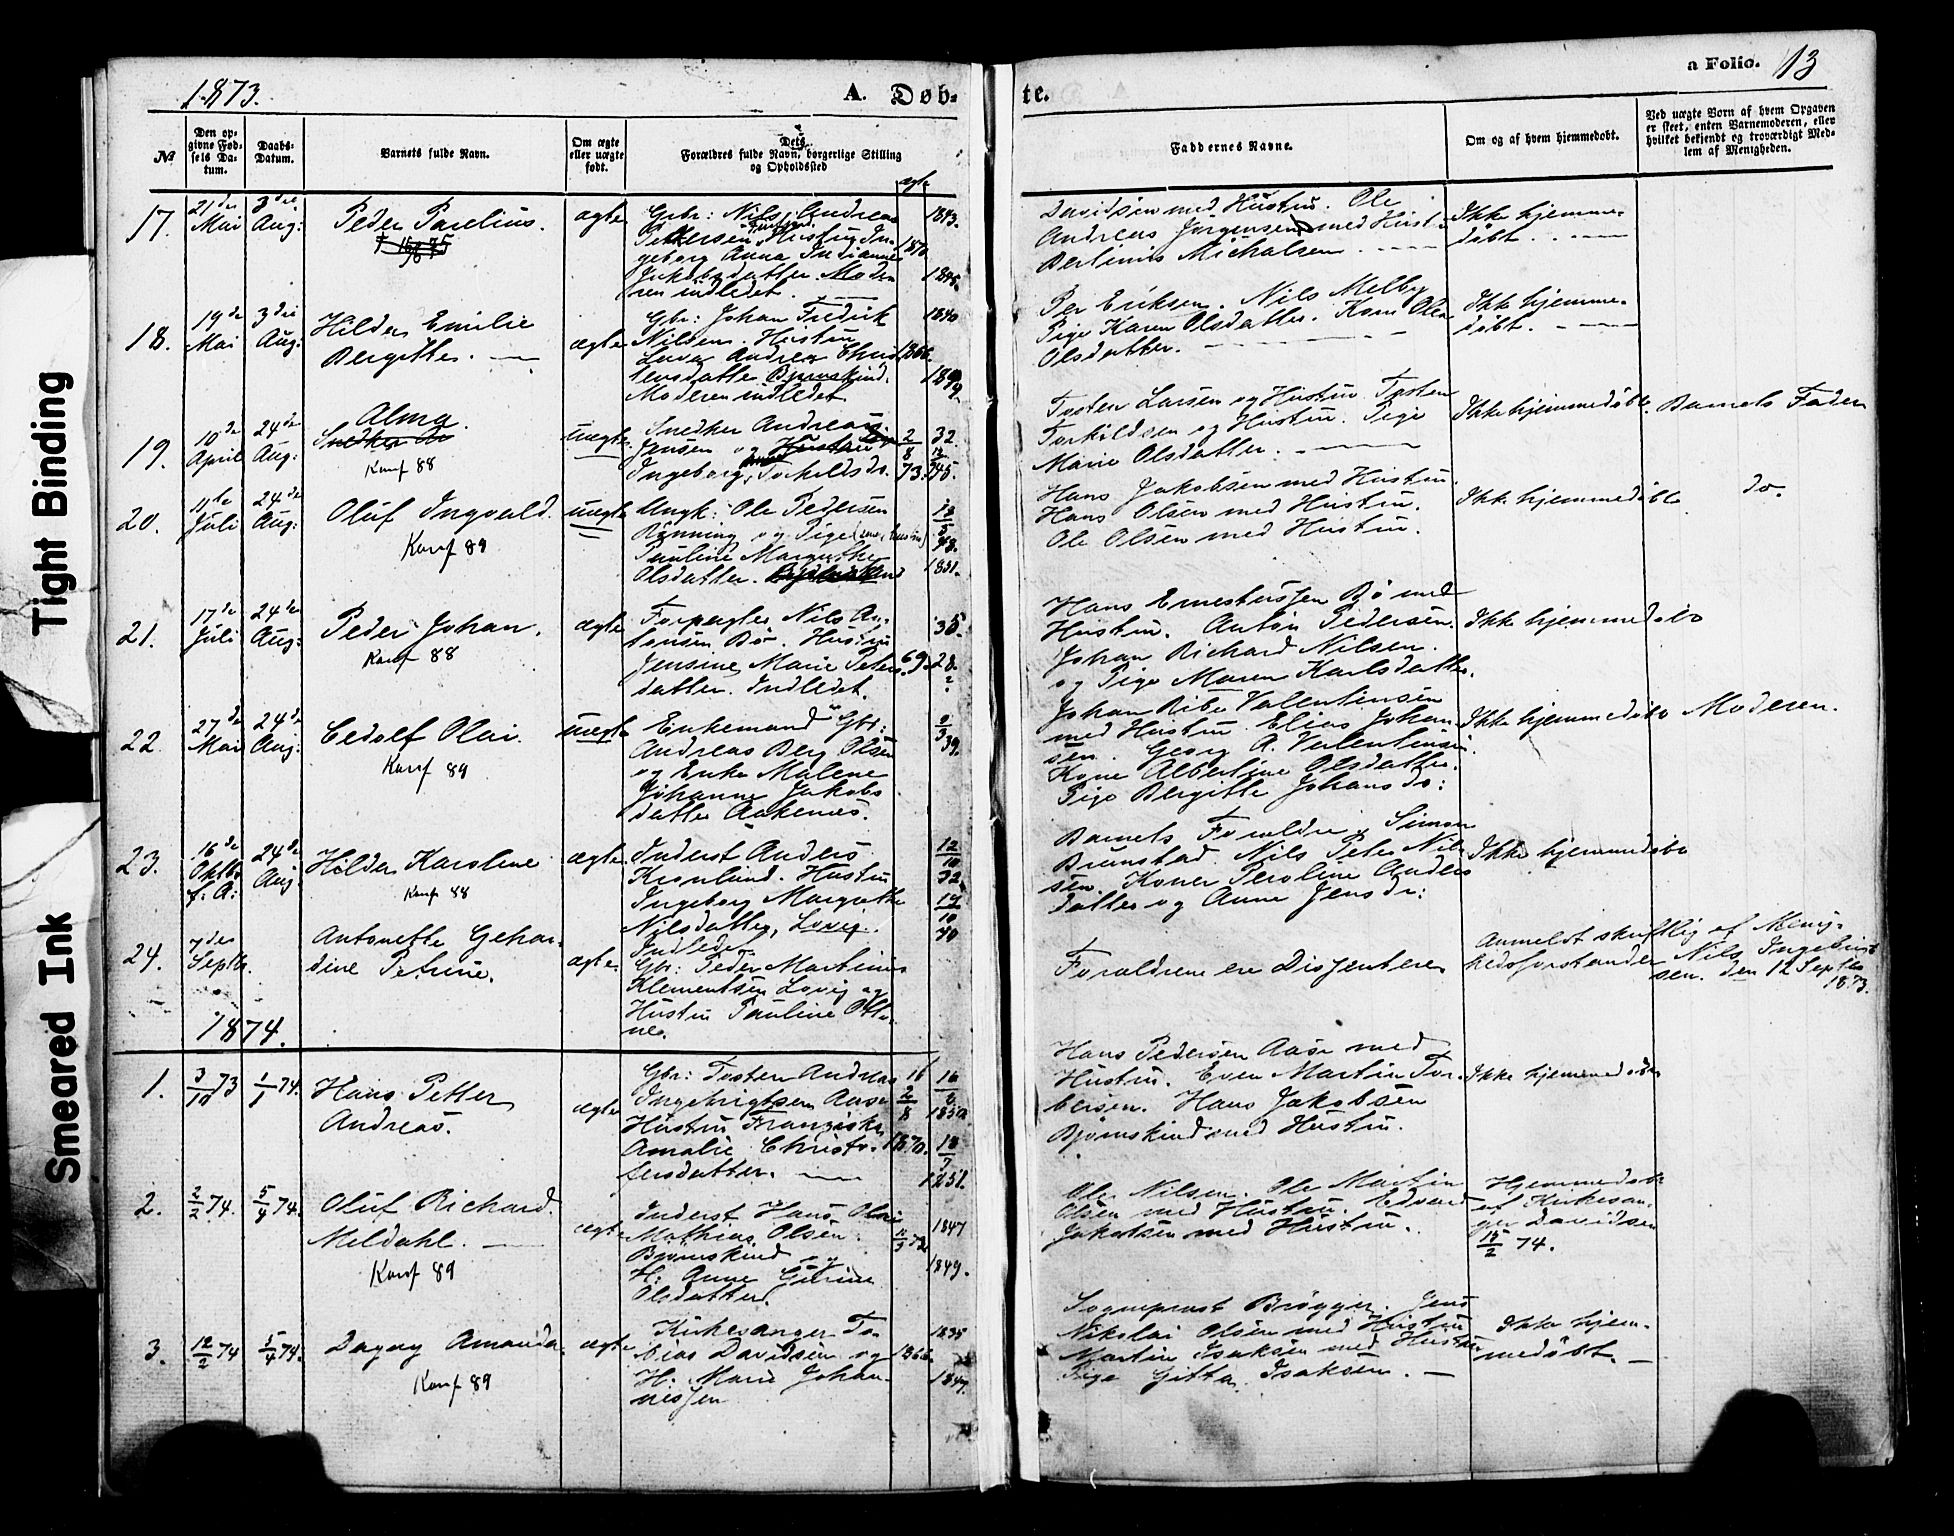 Tight Binding
Smeared Ink
1873.
A. Døb-
te.
a Folio. 13
№
Den op-
givne Fød-
sels Da-
tum.
Daabs-
Datum.
Barnets fulde Navn.
Om ægte
eller uægte
født.
Dets
Forældres fulde Navn, borgerlige Stilling
og Opholdssted
ægte
Faddernes Navne.
Om og af hvem hjemmedøbt.
Ved uægte Børn af hvem Opgaven
er skeet, enten Barnemoderen, eller
hvilket bekjendt og troværdigt Med-
lem af Menigheden.
17.
21de
Mai
3die
Aug:
Peder Parelius.
ægte
Grbr: Nils Andreas
Pettersen Hustru In-
geborg Anna Indianne
Jakobsdatter. Mode-
ren indledet.
1843.
1870
1845.
Davidsen med Hustru. Ole
Andreas Jørgensen med Hust-
Berlinus Michalsen
Ikke hjemme-
døbt.
18.
19de
Mai
3die
Aug:
Hilda Emilie
Bergitte.
ægte
Gbr: Johan Fredrik
Nilsen. Hustru
Lava Andrea Chris
tensdatter Bjørnskind.
Moderen indledet
1840
1866.
Per Eriksen. Nils Melby
Pige Karen Olsdatter. Kone Olea
Olsdatter.
Ikke hjemme-
døbt.
19.
10de
April
24de
Aug:
Alma
Konf 88
uægte
Snedker Andreas
Jensen og Hustru
Ingeborg Torkildsdr.
2
8
73.
32.
45.
Tosten Larsen og Hustru. Tosten
Torkildsen og Hustru. Pige
Marie Olsdatter.
Ikke hjemmedøbt.
Barnets Fader
20.
11te
Juli
24de
Aug:
Oluf Ingvald.
Konf 89
uægte
Ungk: Ole Pedersen
Rønning og Pige
Pauline Margrethe
Olsdatter.
48.
1851.
Hans Jakobsen med Hustru.
Hans Olsen med Hustru.
Ole Olsen med Hustru.
Ikke hjemmedøbt
do.
21.
17de
Juli
24de
Aug:
Peder Johan.
Konf 88
ægte
Forpagter Nils An-
tonsen Bø. Hustru
Jensine Marie Peters-
datter. Indledet.
69.
28.
Hans Ernestussen Bø med
Hustru. Anton Pedersen.
Johan Richard Nilsen.
og Pige Maren Karlsdatter.
Ikke hjemmedøbt
22.
27de
Mai
24de
Aug:
Cedolf Olai.
Konf 89
uægte
Enkemand Gbr:
Andreas Berg Olsen
og Enke Malene
Johanne Jakobs
datter Aakenes.
39.
Johan Ribe Valentinsen
med Hustru. Elias Johan-
sen. Georg A. Valentinsen.
Kone Albertine Olsdatter.
Pige Bergitte Johansdr:
Ikke hjemmedøbt
Moderen.
23.
16de
Oktbr
f. A:
24de
Aug:
Hilda Karoline
Konf 88
ægte
Inderst Anders
Kronlund. Hustru
Ingeborg Margrethe
Nilsdatter, Lovig.
Indledet
12
10
32
40
Barnets Forældre, Simon
Brunstad. Nils Peter Nil-
sen. Koner Peroline Anders
datter og Anne Jensdr:
Ikke hjemmedøbt
24.
7de
Septbr.
Antonette Gehar-
dine Petrine.
ægte
Gbr: Peder Martinus
Klementsen Lovig og
Hustru Pauline Olte-
nes.
Forældrene ere Dissentere
Anmeldt skriftlig af Menig-
hedsforstander Nils Ingebrigt
sen. den 12 Septbr
1873.
1874.
1.
3/10 73
1/1 74.
Hans Petter
Andreas.
ægte
Gbr: Tosten Andreas
Ingebrigtsen Aase
Hustru Franziska
Amalie Christo-
fersdatter.
16
2
8
1850
1870.
18
7
1851.
Hans Pedersen Aase med
Hustru. Even Martin Tor-
bersen. Hans Jakobsen
Bjørnskind med Hustru.
Ikke hjemmedøbt
2.
2/2 74.
5/4 74.
Oluf Richard
Meldahl.
Konf 89
ægte
Inderst Hans Olai
Mathias Olsen.
Bjørnskind og
H: Anne Gurine
Olsdatter.
1847
1849.
Ole Nilsen. Ole Martin
Olsen med Hustru. Edvard
Jakobsen med Hustru.
Hjemmedøbt
af Kirkesan-
ger Davidsen
15/2 74.
3.
12/2 74
5/4 74.
Dagny Amanda
Konf 89
ægte
Kirkesanger To-
bias Davidsen og
H: Marie Johan-
nessen
1835
1866.
1847.
Sogneprest Brøgger. Jens
Nikolai Olsen med Hustru
Martin Isaksen med Hustru
Pige Gitta Isaksen.
Ikke hjem-
medøbt.